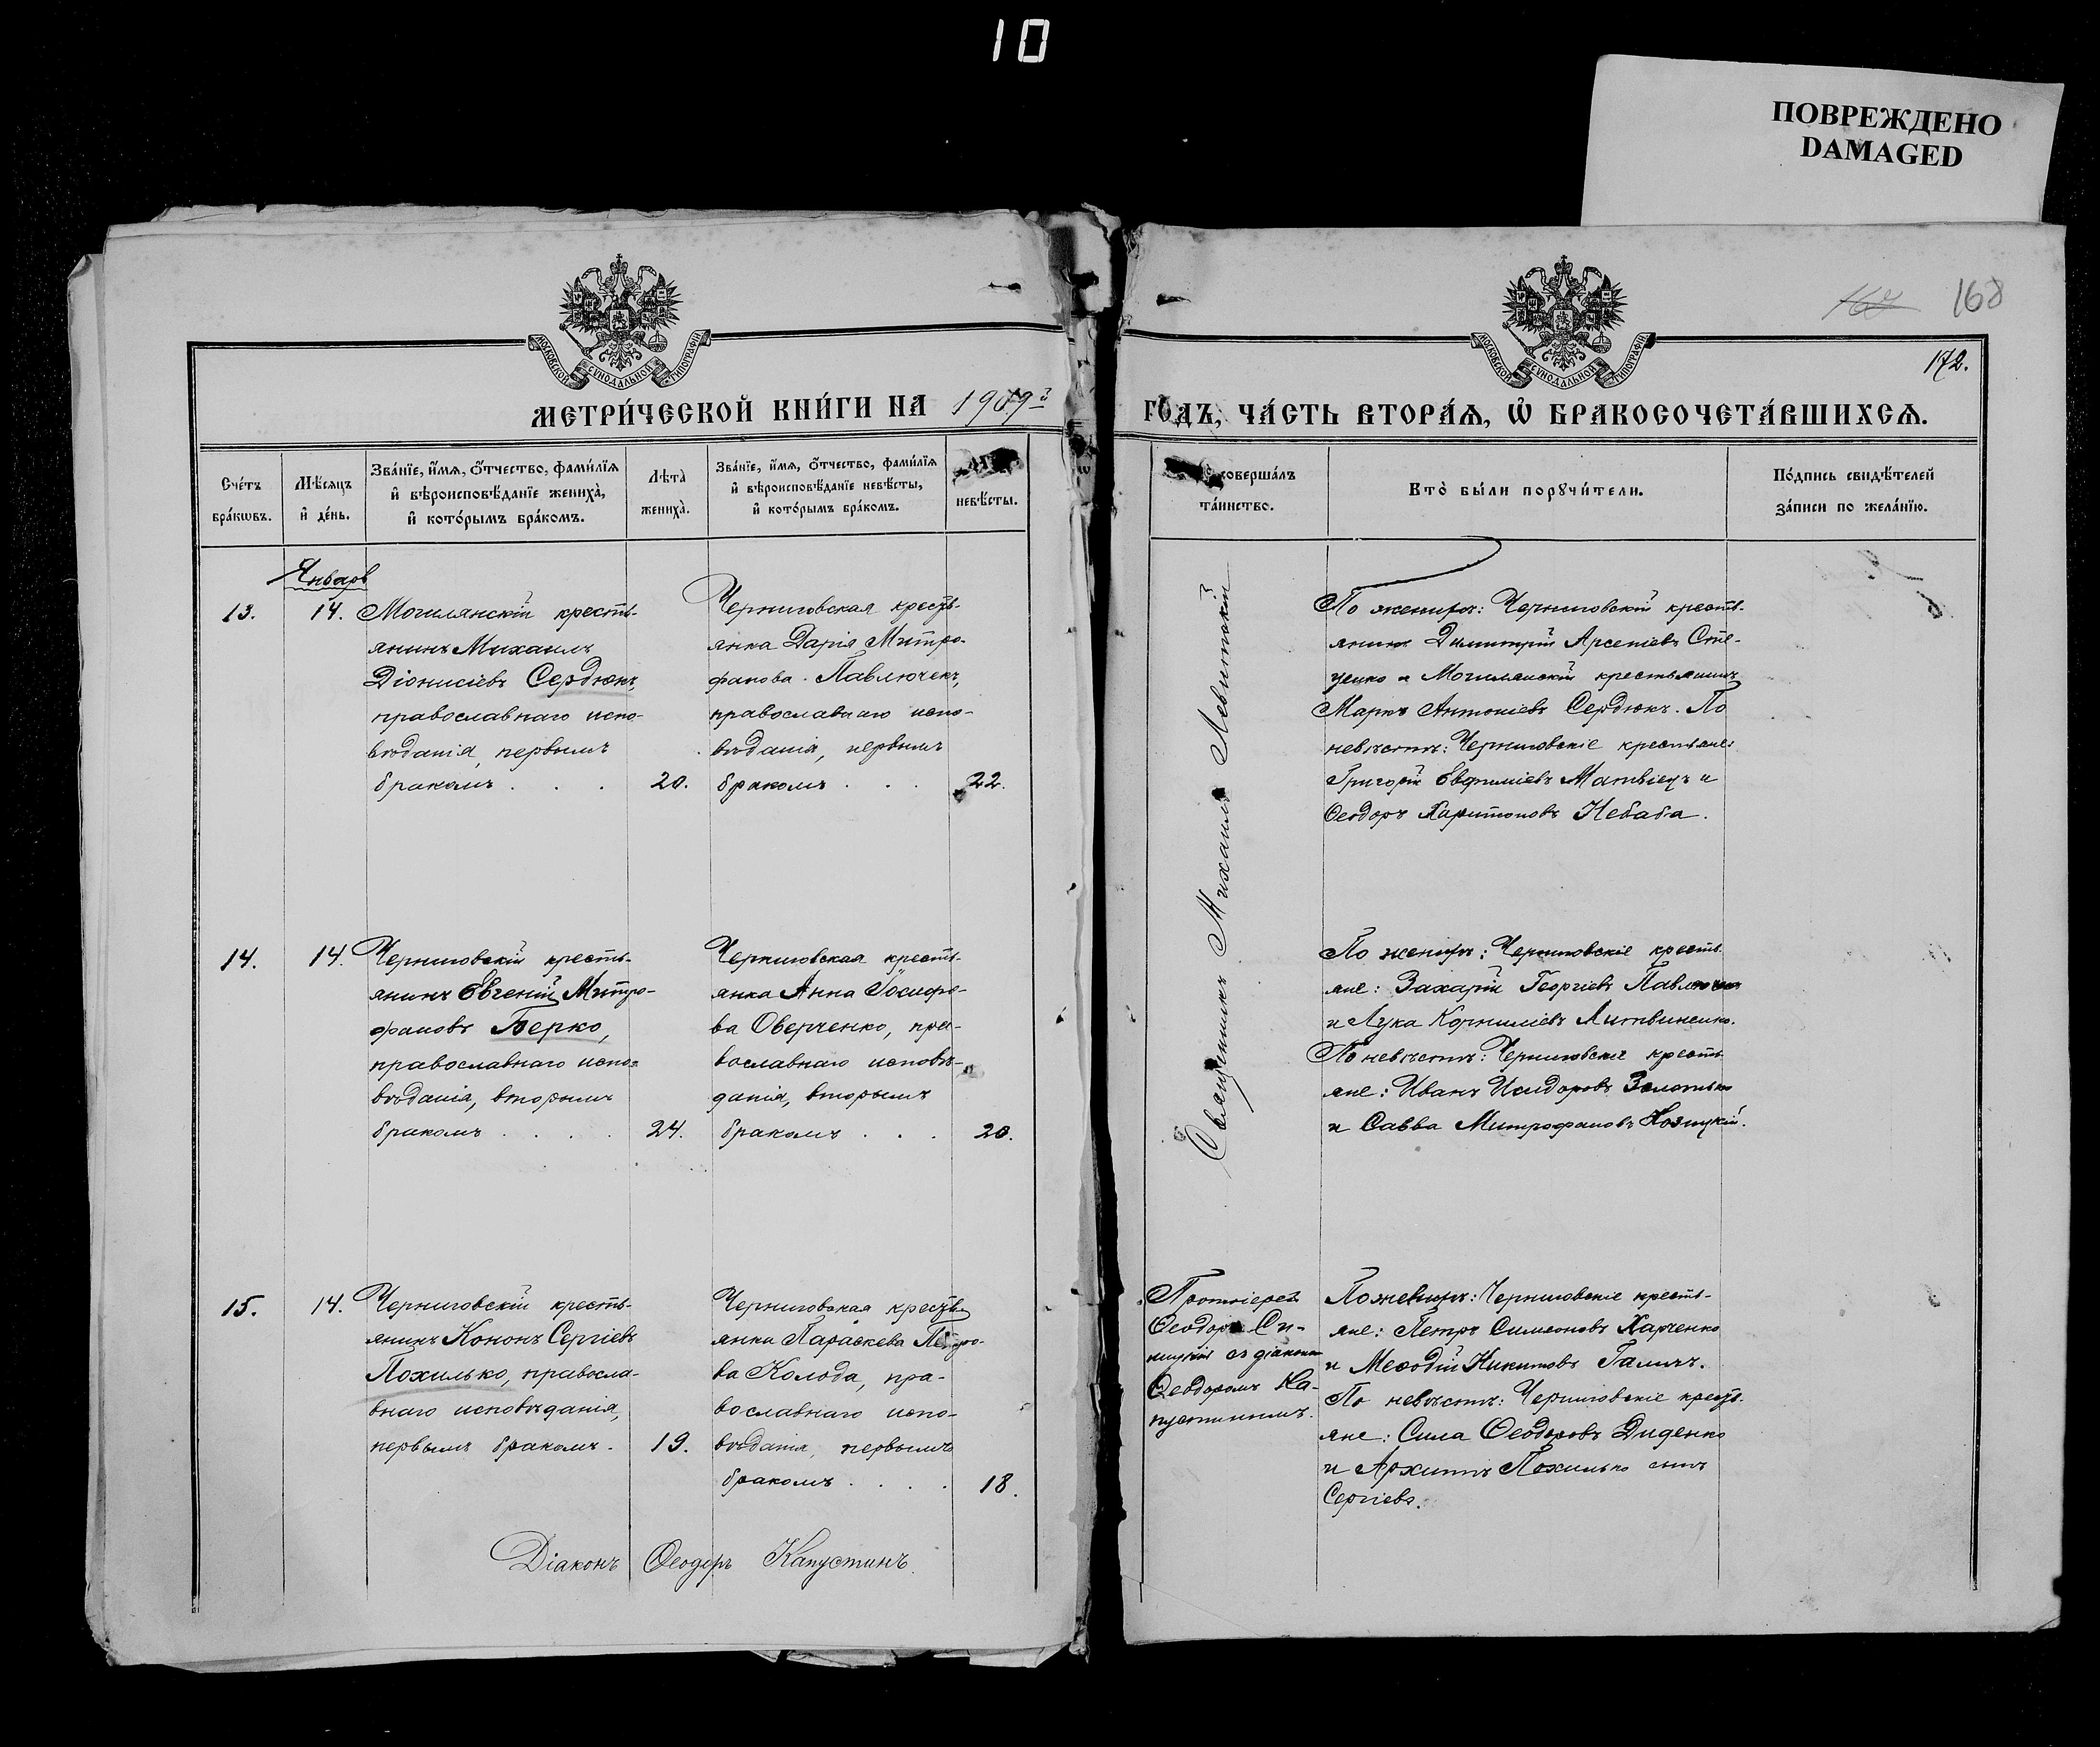 10
ПОВРЕЖДЕНО
DAMAGED
168
172.
МОСКОВСКОЙ СУНОДАЛЬНОЙ ТИПОГРАФІИ
МОСКОВСКОЙ СУНОДАЛЬНОЙ ТИПОГРАФІИ
МЕТРИ́ЧЕСКОЙ КНИ́ГИ НА 1909 г
ГО́ДЪ, ЧА́СТЬ ВТОРА́Ѧ, Ѽ БРАКОСОЧЕТА́ВШИХСѦ.
Сче́тъ бра́кѡвъ.
Мѣ́сяцъ и҆ де́нь.
Зва́нїе, и҆́мѧ, ѻ҆́тчество, фами́лїѧ
и҆ вѣроисповѣ́данїе жениха̀,
и҆ кото́рымъ бра́комъ.
Лѣта̀ жениха̀.
Зва́нїе, и҆́мѧ, ѻ҆́тчество, фами́лїѧ
и҆ вѣроисповѣ́данїе невѣ́сты,
и҆ кото́рымъ бра́комъ.
невѣ́сты.
соверша́лъ
та́инство.
Кто̀ бы́ли порꙋчи́тели.
По́дпись свидѣ́телей
за́писи по жела́нїю.
Январь
13.
14.
Могилянскій кресть-
янинъ Михаилъ
Діонисіевъ Сердюкъ,
православнаго испо-
вѣданія, первымъ
бракомъ . . .
20.
Черниговская кресть-
янка Дарія Митро-
фанова Павлюченк,
православнаго испо-
вѣданія, первымъ
бракомъ . . .
22.
Священникъ Михаилъ Левитскій
По женихѣ: Черниговскій кресть-
янинъ Димитрій Арсеніевъ Сте-
ценко и Могилянскій крестьянинъ
Маркъ Антоніевъ Сердюкъ. По
невѣстѣ: Черниговскіе крестьяне:
Григорій Евфиміевъ Матвіецъ и
Ѳеодоръ Харитоновъ Небаба.
14.
14.
Черниговскій кресть-
янинъ Евгеній Митро-
фановъ Берко,
православнаго испо-
вѣданія, вторымъ
бракомъ . . . .
24.
Черниговская кресть-
янка Анна Іосифо-
ва Оверченко, пра-
вославнаго исповѣ-
данія, вторымъ
бракомъ . . .
20.
По женихѣ: Черниговскіе кресть-
яне: Захарій Георгіевъ
и Лука Корниліевъ Литвиненко.
По невѣстѣ: Черниговскіе кресть-
яне: Иванъ Исидоровъ Золотько
и Савва Митрофановъ Козицкій.
15.
14.
Черниговскій кресть-
янинъ Кононъ Сергіевъ
Похилько, правосла-
внаго исповѣданія,
первымъ бракомъ.
19.
Черниговская кресть-
янка Параскева Петро-
ва Колода, пра-
вославнаго испо-
вѣданія, первымъ
бракомъ . . . .
18.
Протоіерей
Ѳеодоръ Си-
ницкій съ діакономъ
Ѳеодоромъ Ка-
пустинымъ.
По женихѣ: Черниговскіе кресть-
яне: Петръ Симеоновъ Харченко
и Меѳодій Никитовъ Галичъ.
По невѣстѣ: Черниговскіе кресть-
яне: Сила Ѳеодоровъ Диденко
и Архипъ Похилько сынъ
Сергіевъ.
Діаконъ Ѳеодоръ Капустинъ.